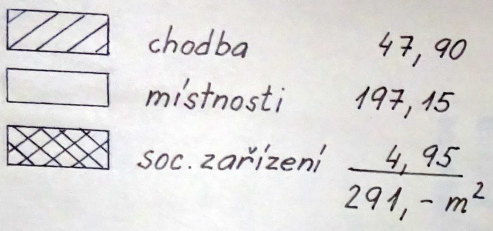 chodba 47,90
místnosti 197,15
soc. zařízení 4,95
291,- m²